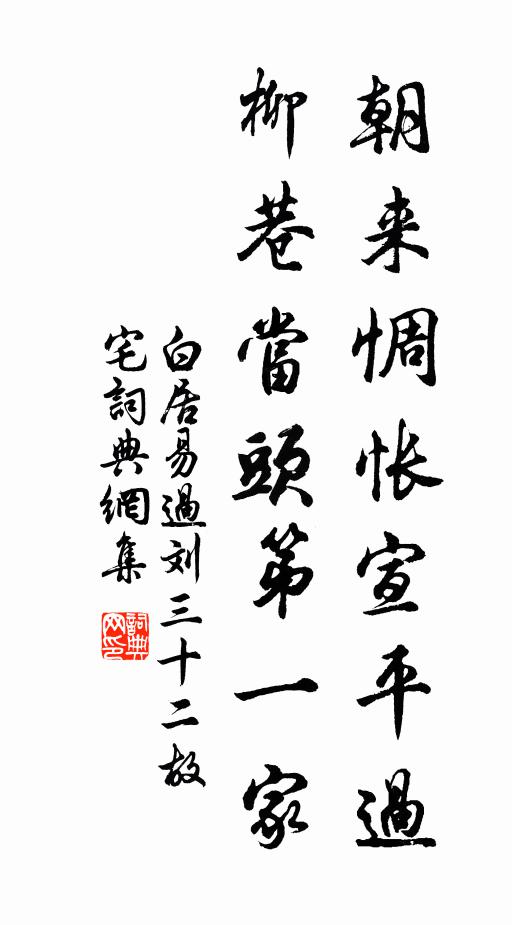 朝来惆怅宣平過
柳巷當頭第一家
白居易過刘三十二故
宅詞典網集
詞典网印